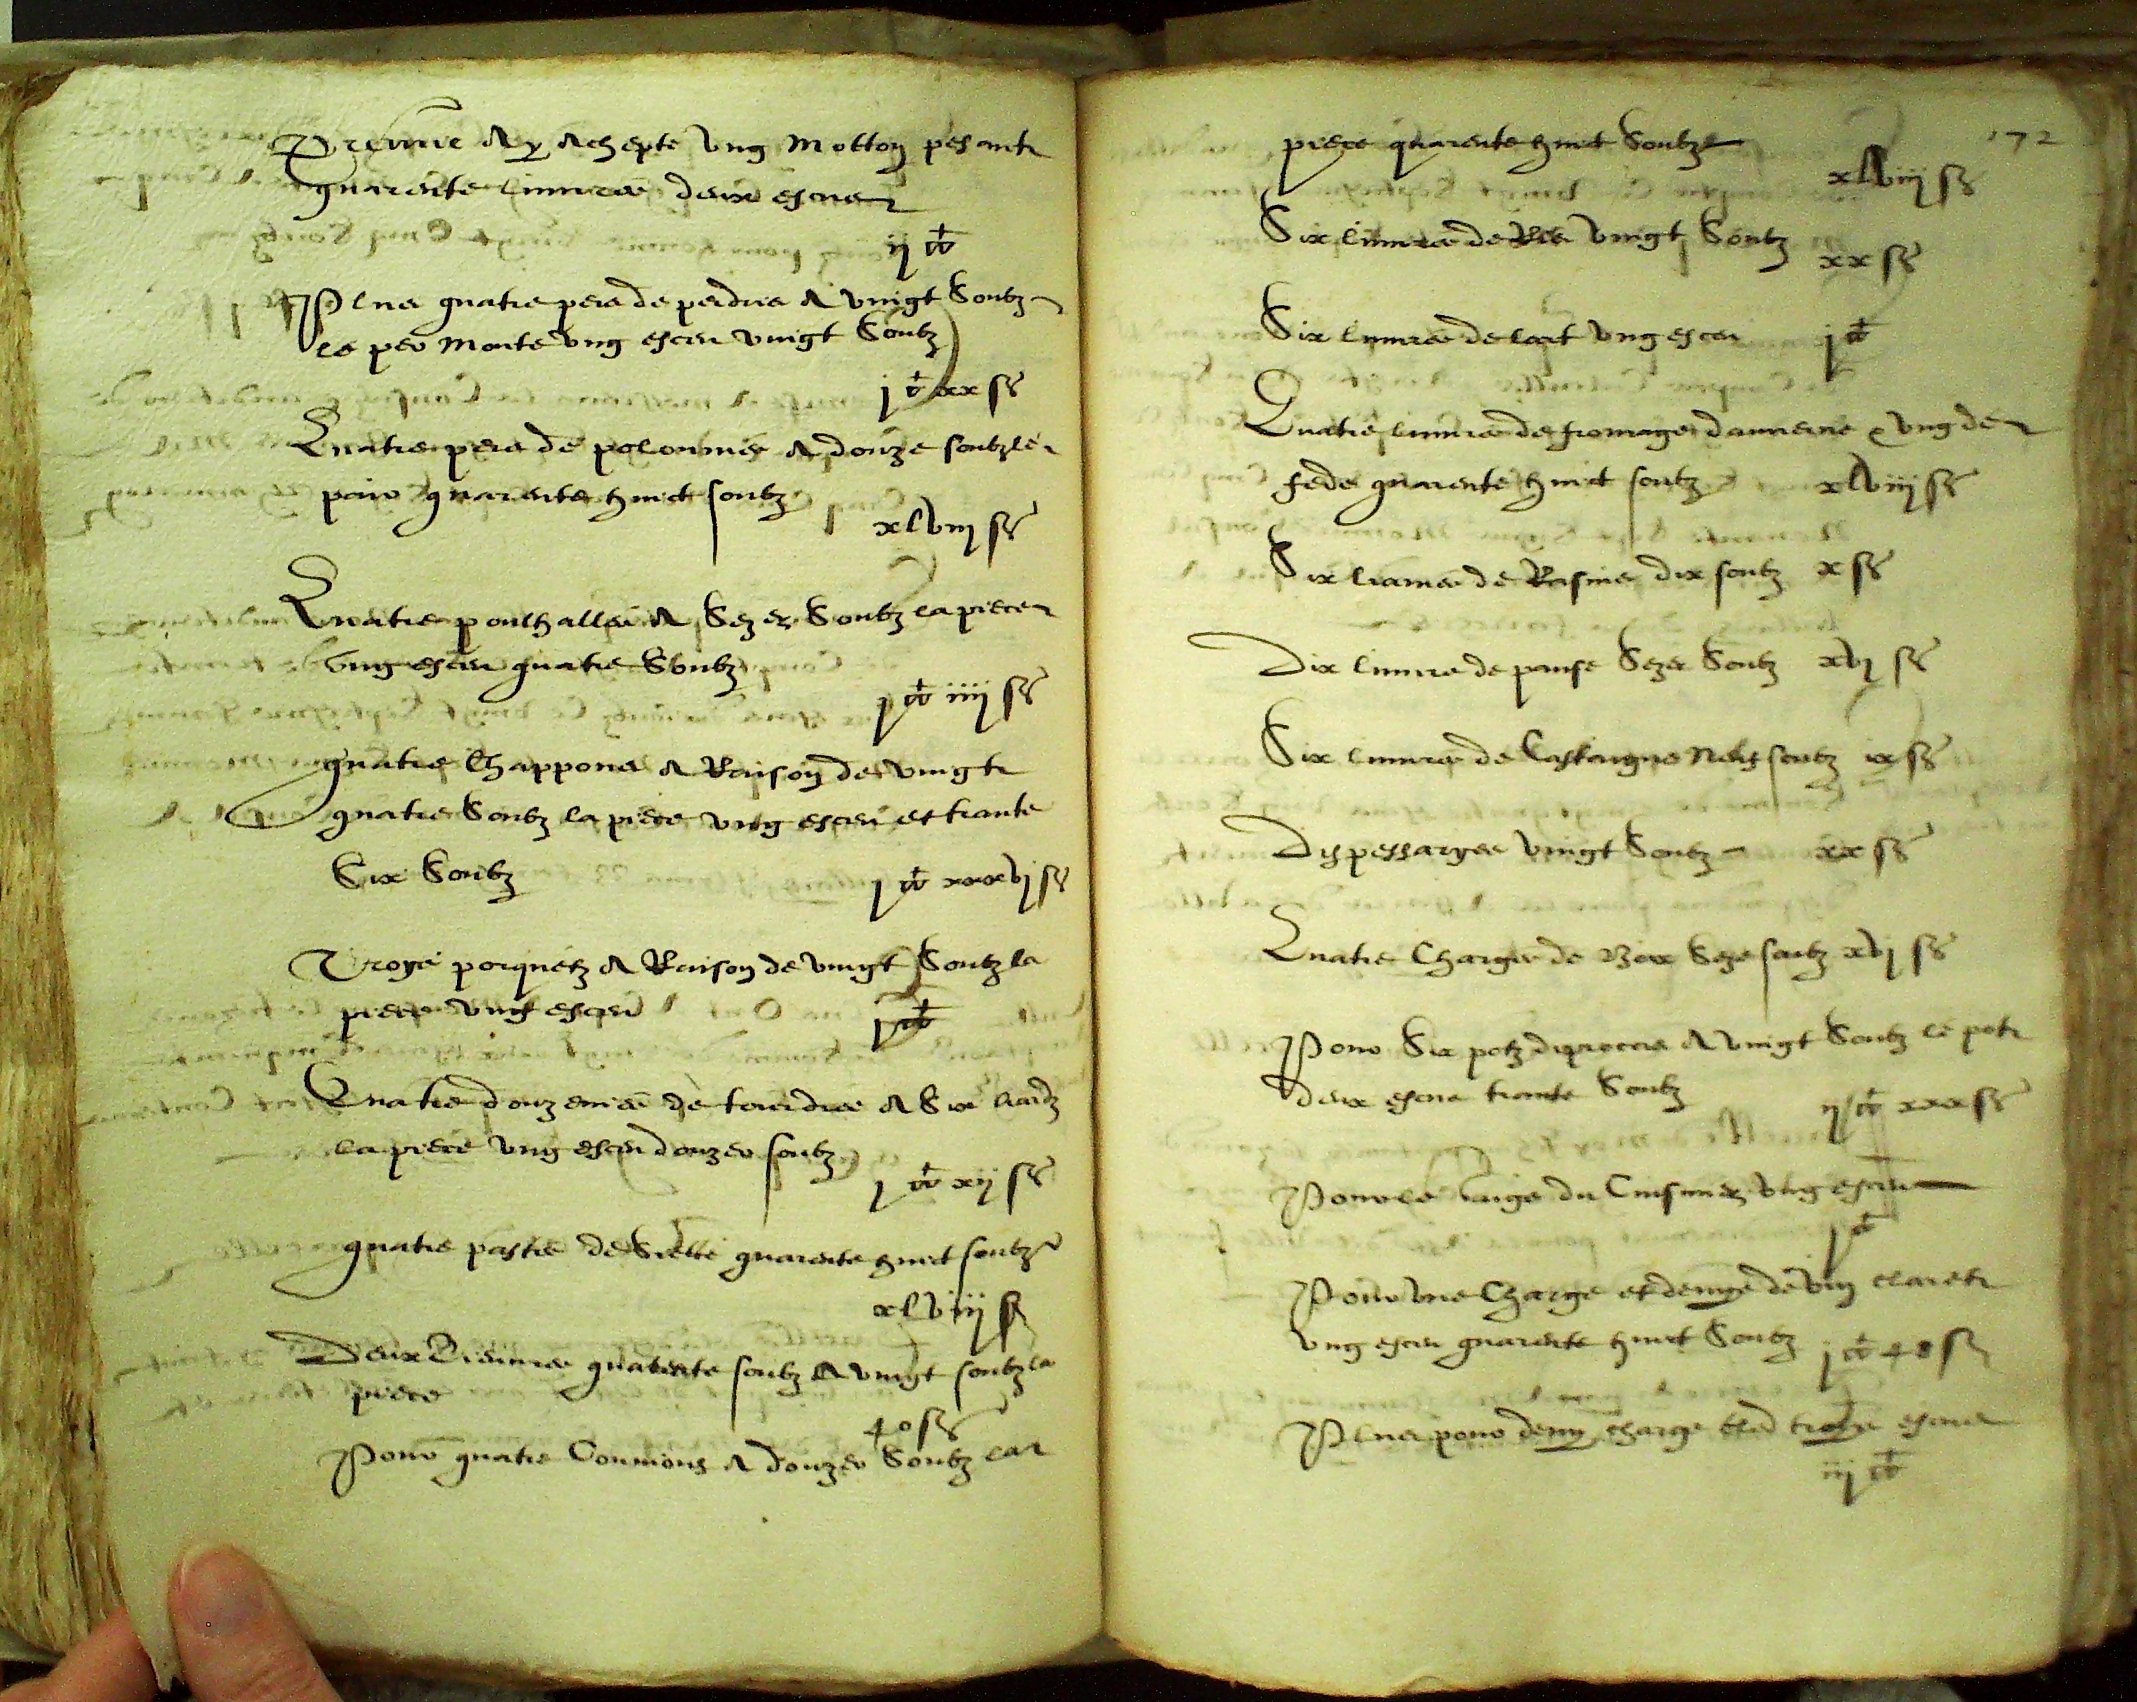 Premie ay achepte ung motton pesant
quarente liuvres deux escus
ij ▽
Plus quatre pers de perdris a vingt soubz
le per monte ung escu vingt soubz
j ▽ xx ss
Quatre pers de polommes a douze soubz le
pair quarente huict soubz
xlviij ss
Quatre poulhalles a seze soubz la piece
ung escu quatre soubz
j ▽ iiij ss
quatre chappons a raison de vingt
quatre soubz la piece ung escu et trante
six soubz
j ▽ xxxvj ss
Troys porquetz a raison de vingt soubz la
piece ung escu
j ▽
Quatre douzenes de tourdres a six liardz
la piece ung escu douze soubz
j ▽ xij ss
quatre pastes de quarente huict soubz
xlviij ss
Deux quarente soubz a vingt soubz la
piece
40 ss
Pour quatre connions a douze soubz la
172
piece quarente huict soubz
xlviij ss
Six liuvres de ris vingt soubz
xx ss
Six liuvres de lart ung escu j ▽
Quatre liuvres de fromage dauverne et ung de
fede quarente huict soubz xlviij ss
Six liames de rasins dix soubz x ss
Dix liuvres de panse seze soubz xvj ss
Six liuvres de castaignes neuf soubz ix ss
Dix pessarges vingt soubz xx ss
Quatre charges de boix seze soubz xvj ss
Pour six potz dipocras a vingt soubz le pot
deux escus trante soubz
ij ▽ xxx ss
Pour le du cuisinier ung escu
j ▽
Pour une charge et demye de vin claret
ung escu quarente huict soubz j ▽ 48 ss
Plus pour demy charge bled troys escus
iij ▽